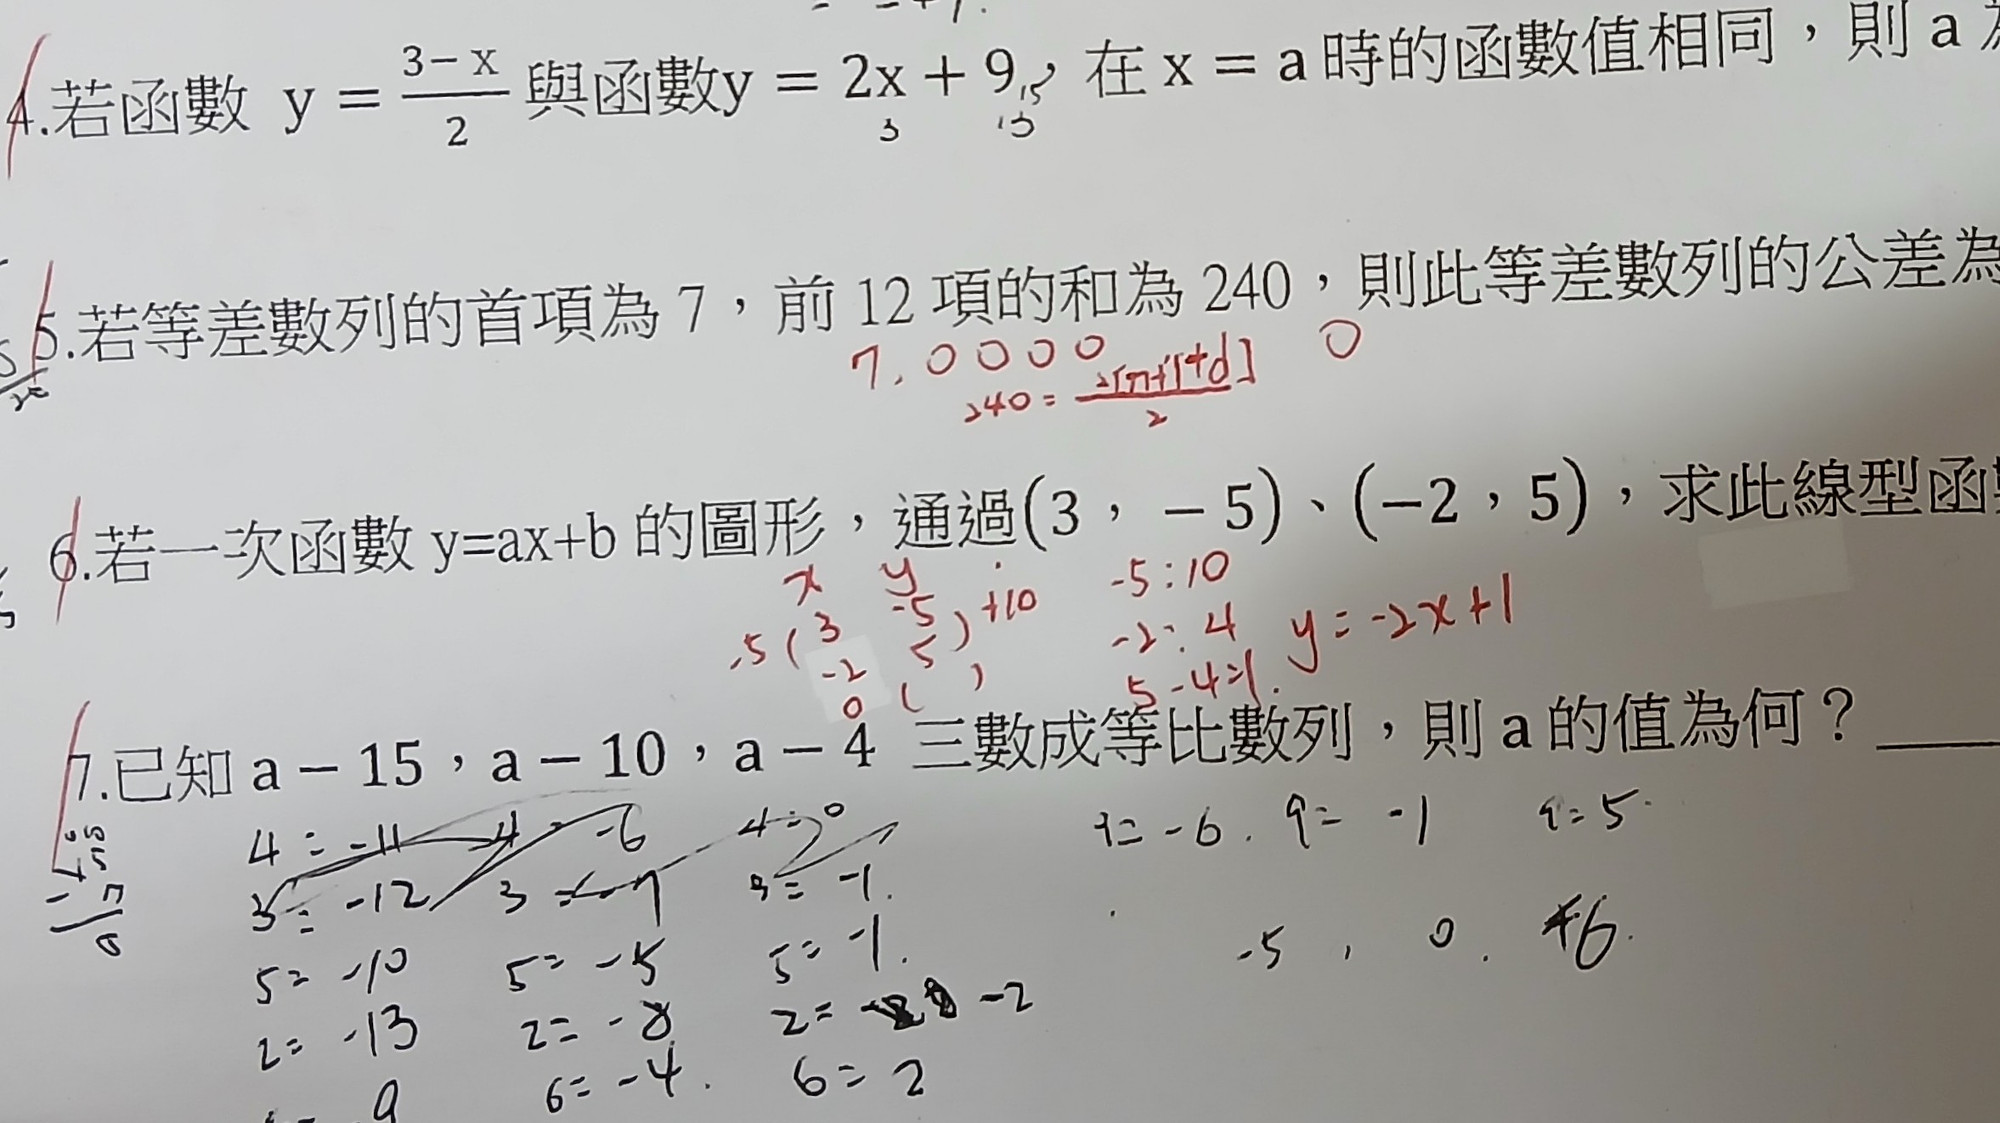 4.若函數 y = 3－x/2 與函數y = 2x + 9, 在 x = a 時的函數值相同，則 a
3 15
13
5.若等差數列的首項為 7，前 12 項的和為 240，則此等差數列的公差為
7, 0 0 0 0 0
240 =
2
6.若一次函數 y=ax+b 的圖形，通過(3，－5)、(－2，5)，求此線型函
x y -5:10
-5( 3 -5 ) +10 -2:4 y=-2x+1
-2 5
0 ( ) 5-4=1.
7.已知 a－15，a－10，a－4 三數成等比數列，則 a 的值為何？____
4=-11 4=-6 4=0 9=-6. 9=-1 9=5.
3=-12 3=-7 3=-1.
5=-10 5=-5 5=-1. -5, 0. +6.
2=-13 2=-8 2= -2
9 6=-4. 6=2